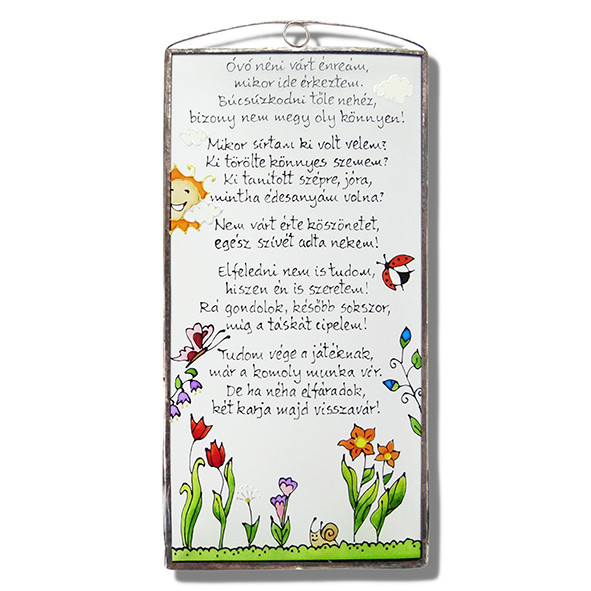 Óvó néni várt énreám,
mikor ide érkeztem.
Búcsúzkodni tőle nehéz,
bizony nem megy oly könnyen!
Mikor sírtam ki volt velem?
Ki törölte könnyes szemem?
Ki tanított szépre, jóra,
mintha édesanyám volna?
Nem várt érte köszönetet,
egész szívét adta nekem!
Elfeledni nem is tudom,
hiszen én is szeretem!
Rá gondolok, később sokszor,
míg a táskát cipelem!
Tudom vége a játéknak,
már a komoly munka vár.
De ha néha elfáradok,
két karja majd visszavár!